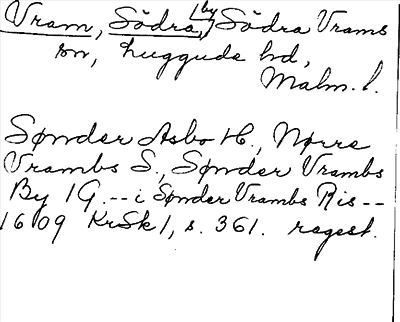 Vram, Södra, by Södra Vrams
sn, Luggude hd,
Malm. l.
Sønder Asbo H., Nørre
Vrambs S., Sønder Vrambs
By 1 G. -- i Sønder Vrambs Ris --
1609 KrSk 1, s. 361. regest.